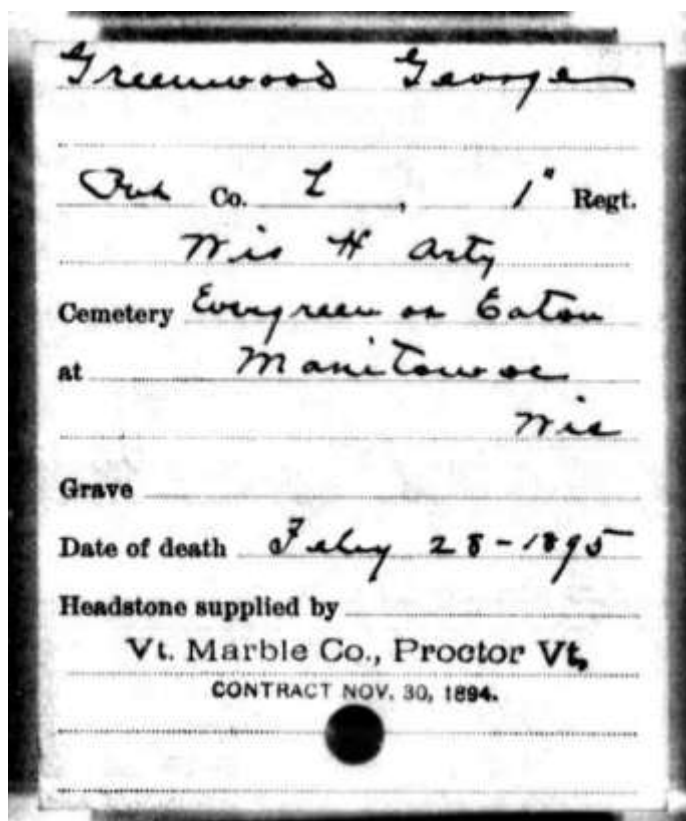 Greenwood George
Pvt Co. L, 1" Regt.
Wis H Arty
Cemetery Evergreen on Eaton
at Manitowoc
Wis
Grave
Date of death Feby 28-1895
Headstone supplied by
Vt. Marble Co., Proctor Vt.
CONTRACT NOV. 30, 1894.